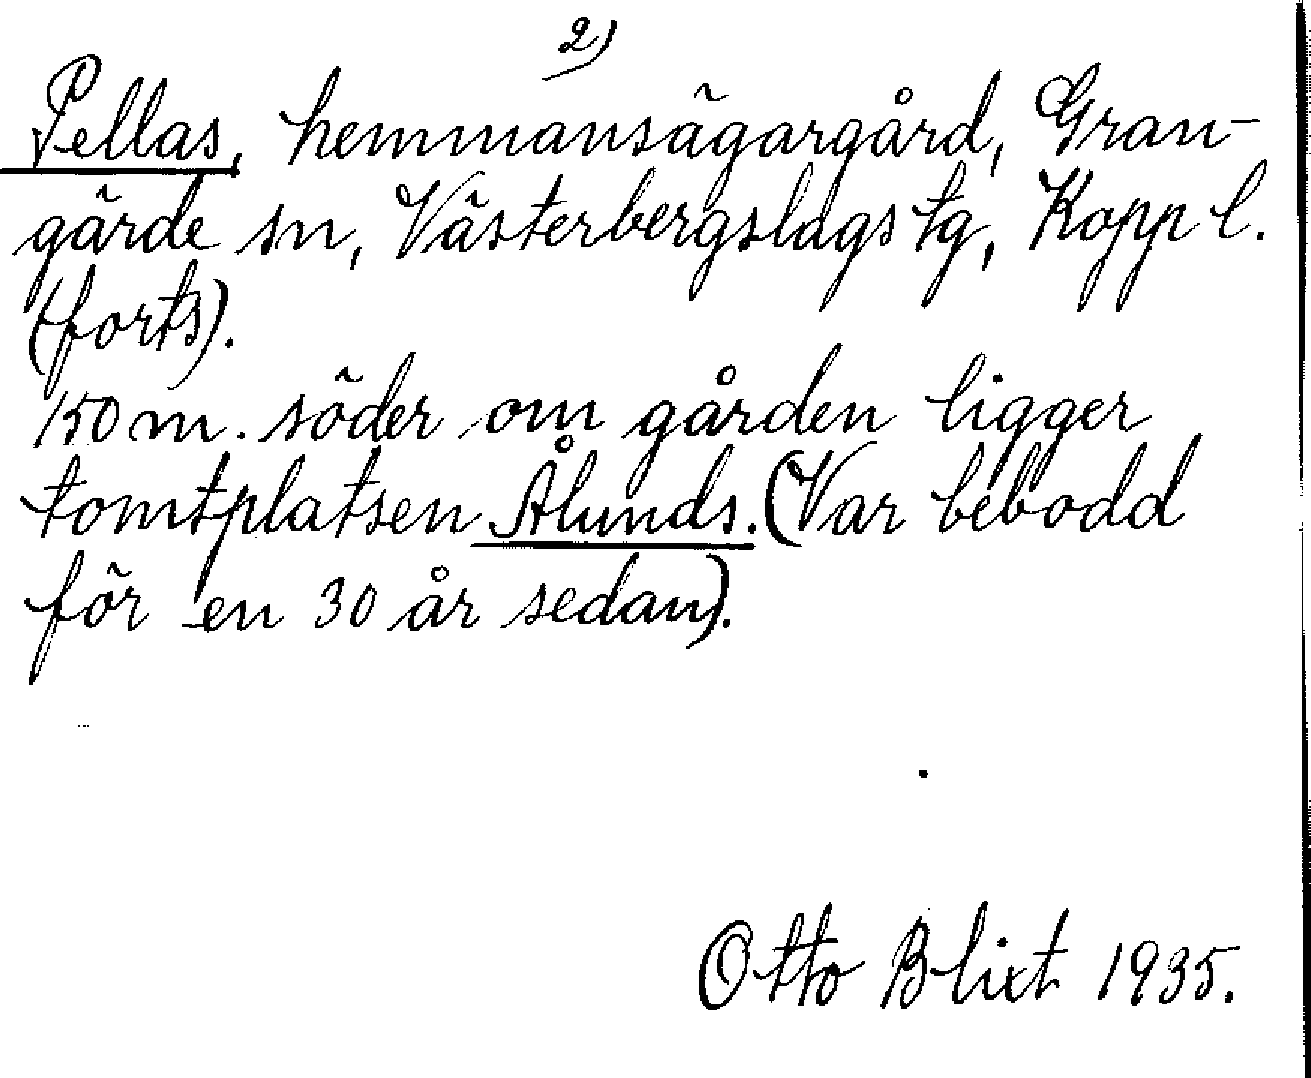 2)
Pellas, hemmansägargård, Gran-
gärde sn, Västerbergslags tg, Kopp l.
(forts).
150 m. söder om gården ligger
tomtplatsen Ålunds. (Var bebodd
för en 30 år sedan).
Otto Blixt 1935.